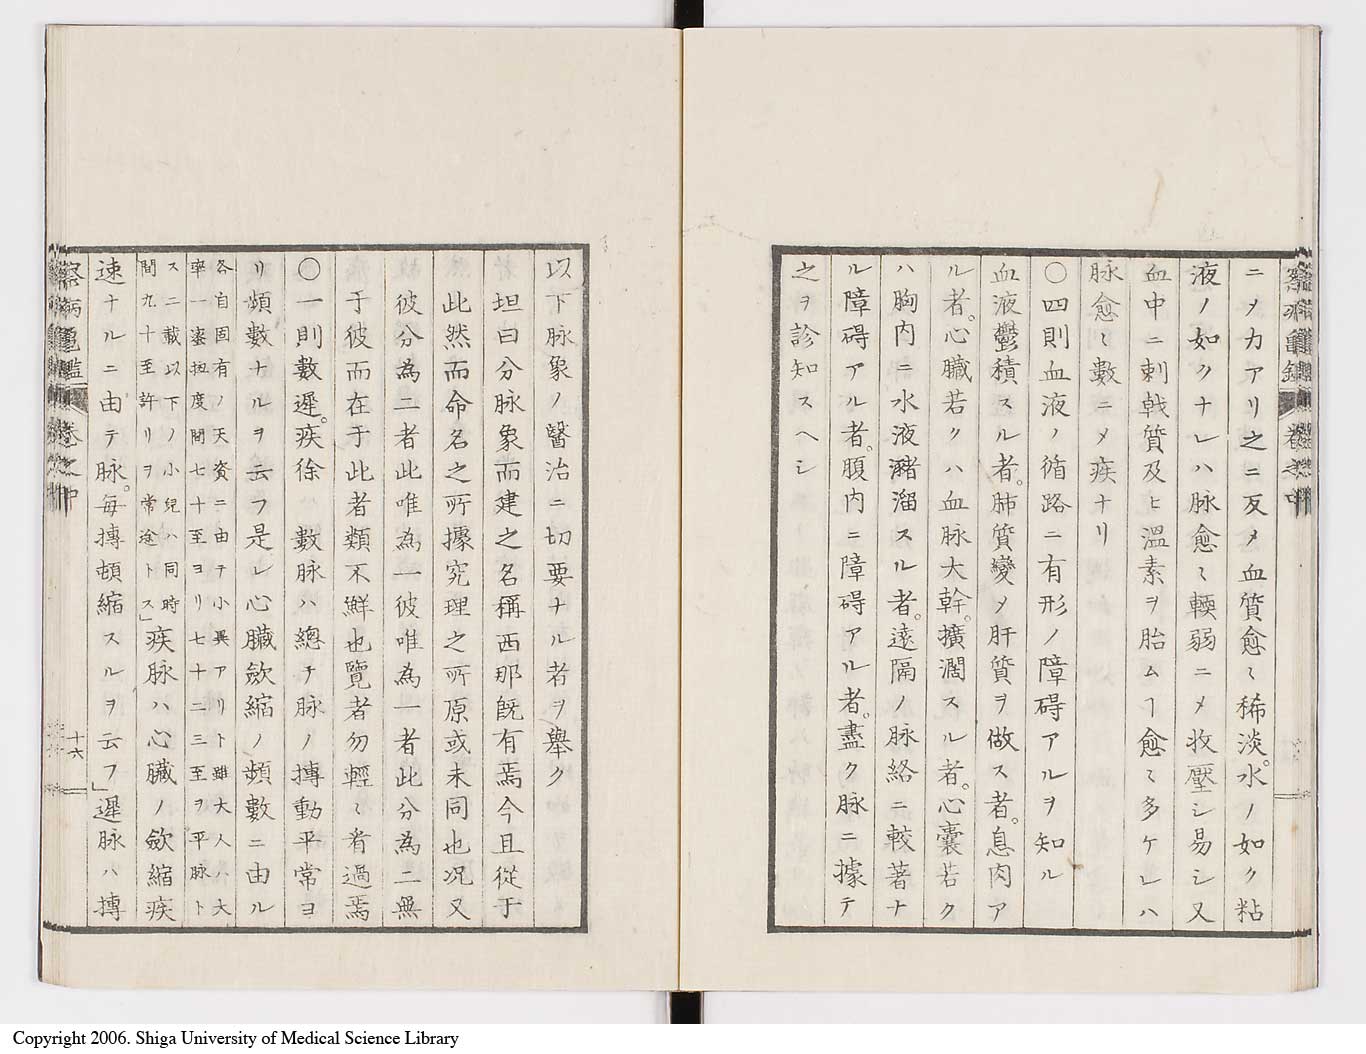 ニメカアリ之ニ反メ血質愈〻稀淡。水ノ如ク粘
液ノ如クナレハ脉愈〻軟弱ニメ收壓シ易シ又
血中ニ刺戟質及ヒ温素ヲ胎ムヿ愈〻多ケレハ
脉愈〻數ニメ疾ナリ
〇四則血液ノ循路ニ有形ノ障碍アルヲ知ル
血液鬱積スル者。肺質變メ肝質ヲ做ス者。息肉ア
ル者。心臓若クハ血脉大幹。擴濶スル者。心囊若ク
ハ胸内ニ水液瀦溜スル者。遠隔ノ脉絡ニ較著ナ
ル障碍アル者。腹内ニ障碍アル者。盡ク脉ニ據テ
之ヲ診知スヘシ
以下脉象ノ醫治ニ切要ナル者ヲ舉ク
坦曰分脉象而建之名稱西那既有焉今且從于
此然而命名之所據究理之所原或未同也况又
彼分為二者此唯為一彼唯為一者此分為二無
于彼而在于此者類不鮮也覽者勿輕〻看過焉
〇一則數遲。疾徐 數脉ハ總テ脉ノ搏動平常ヨ
リ頻數ナルヲ云フ是レ心臓歛縮ノ頻數ニ由ル
各自固有ノ天資ニ由テ小異アリト雖大人ハ大
率一密扭度間七十至ヨリ七十二三至ヲ平脉ト
ス二載以下ノ小兒ハ同時
間九十至許リヲ常途トス」疾脉ハ心臓ノ歛縮疾
速ナルニ由テ脉。毎搏頓縮スルヲ云フ」遲脉ハ搏
察病龜鑑 卷之中
十六